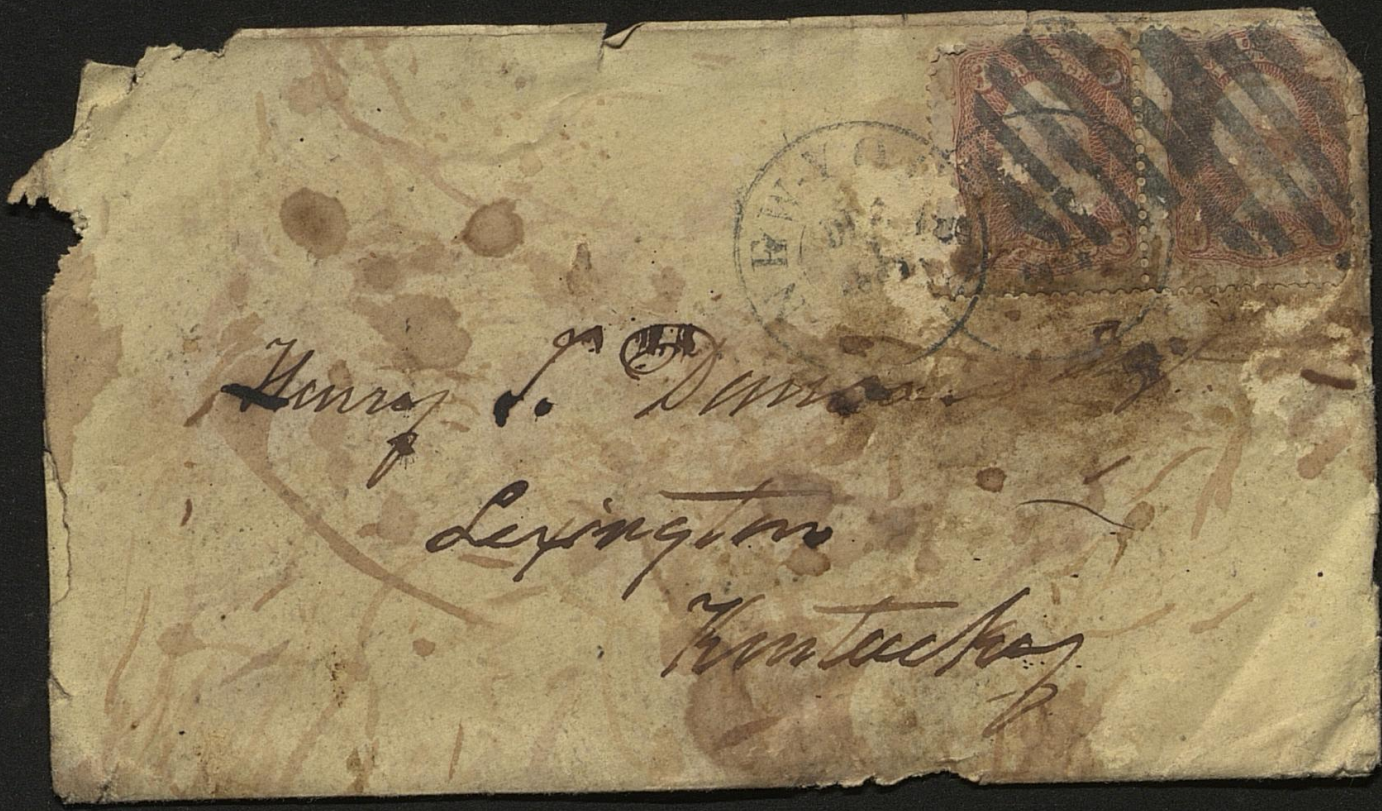 NEW-YO
Henry T. Duncan
Lexington
Kentucky